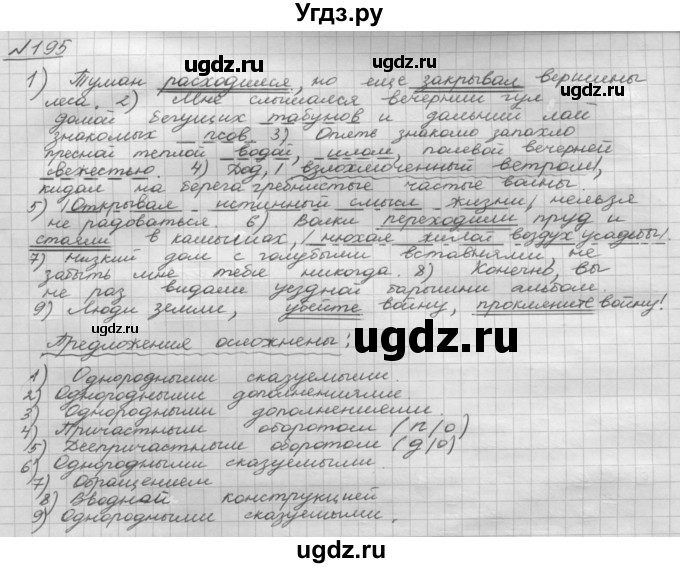 Угдз.ру
№195
1) Туман расходился, но еще закрывал вершины
леса. 2) Мне слышался вечерний гул
домой бегущих табунов и дальний лай
знакомых псов. 3) Опять знакомо запахло
пресной теплой водой, илом, полевой вечерней
свежестью. 4) Дод, взлохмоченный ветром,
кидал на берега гребнистые частые волны.
5) Открывая истинный смысл жизни, нельзя
не радоваться. 6) Волки переходили пруд и
стояли в камышах, нюхая жилой воздух усадьбы.
7) Низкий дом с голубыми ставнями, не
забыть мне тебя никогда. 8) Конечно, вы
не раз видали уездной барышни альбом.
9) Люди земли, убейте войну, проклените войну!
Предложения осложнены:
1) Однородными сказуемыми.
2) Однородными дополнениями
3) Однородными дополнениями.
4) Причастным оборотом (п/о)
5) Деепричастным оборотом (д/о)
6) Однородными сказуемыми.
7) Обращением
8) Вводной конструкцией
9) Однородными сказуемыми.
ugdz.ru
ugdz.ru
ugdz.ru
ugdz.ru
ugdz.ru
ugdz.ru
ugdz.ru
ugdz.ru
ugdz.ru
ugdz.ru
ugdz.ru
ugdz.ru
ugdz.ru